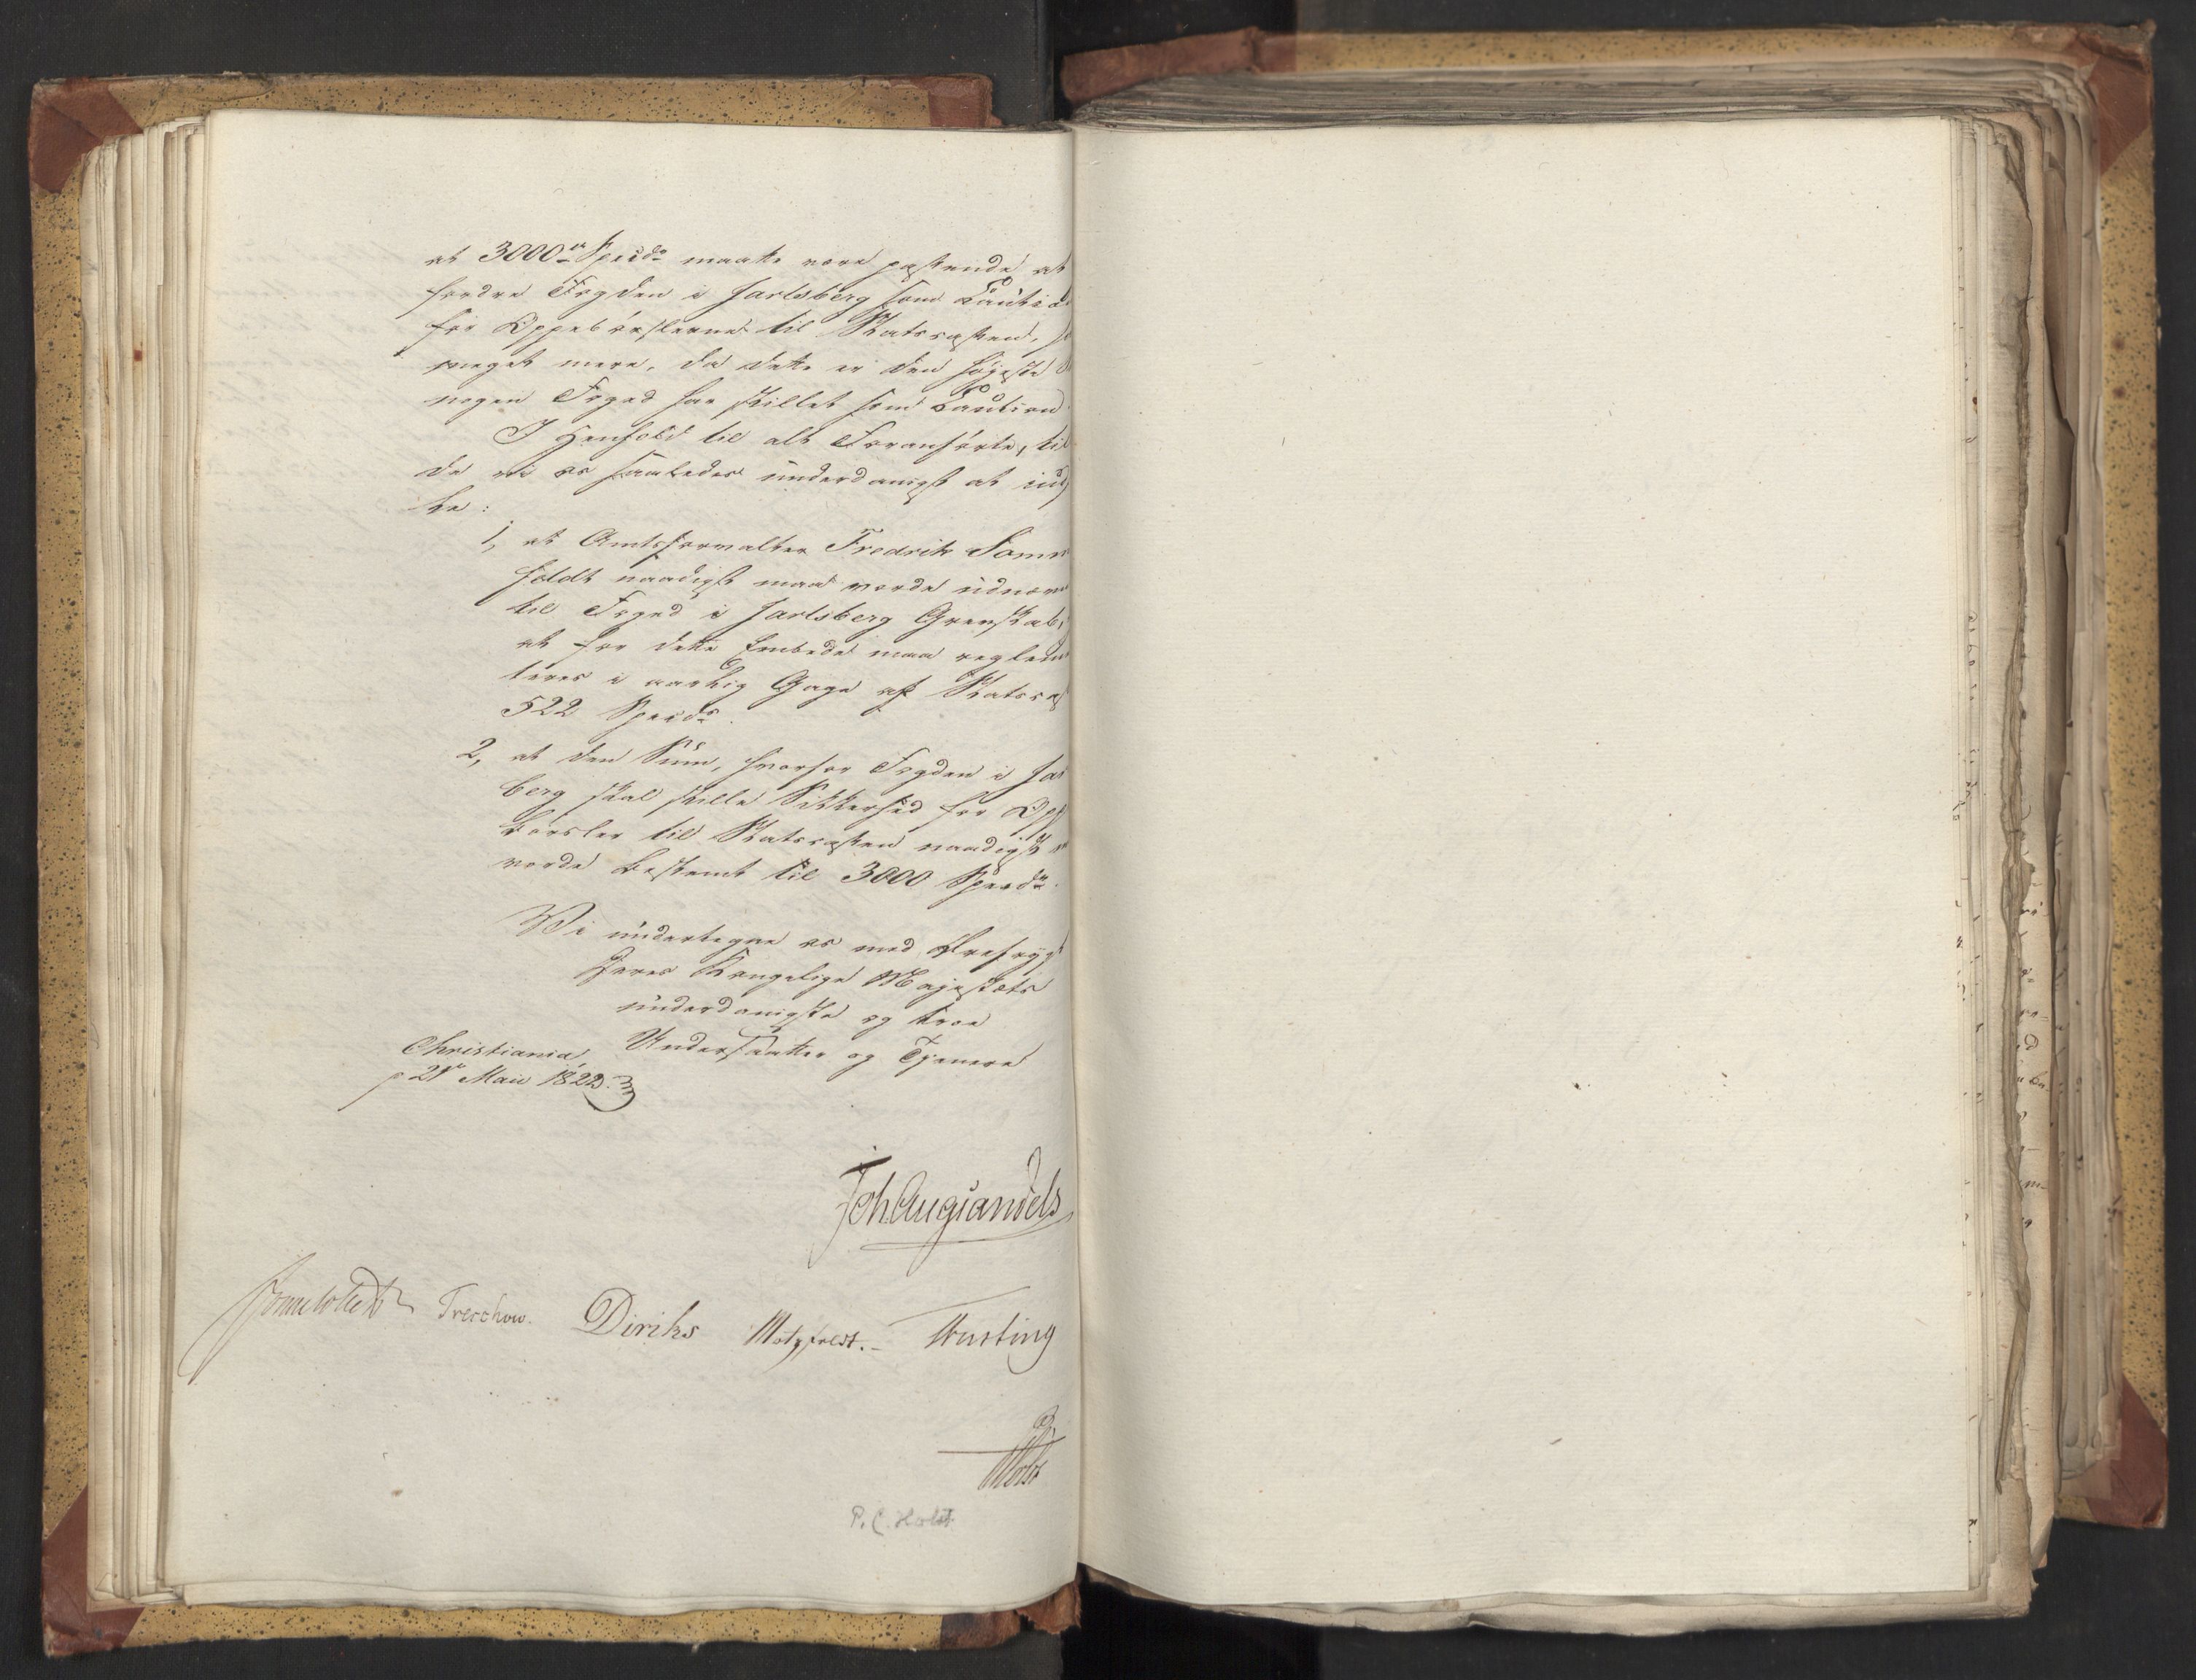 at 3000de Specidr maatte være passende at
fordre Fogden i Jarlsberg som Cautio
for Oppebørslerne til Statscassen, s
meget mere, da dette er den højeste
nogen Foged har stillet som Caution.
I Henhold til alt Foranførte, til
de vi os saaledes underdanigst at ind
ke:
1, at Amtsforvalter Fredrik Som
feldt naadigst maa vorde udnæv
til Foged i Jarlsberg Grevskab,
at for dette Embede maa reglem
teres i aarlig Gage af Statsca
522 Specidr.
2, at den Sum, hvorfor Fogden i Jar
berg skal stille Sikkerhed for Opp
børsler til Statscassen naadigst
vorde bestemt til 3000 Specidr.
Vi undertegne os med Ærefrygt
Deres Kongelige Majestæts
underdanigste og troe
Undersaatter og Tjenere
Christiania,
p 21de Maii 1822.
Joh Aug Sandels
Sommerfeldt Treschow. Diriks Motzfeldt. Fasting
Holst
P. C. Holst